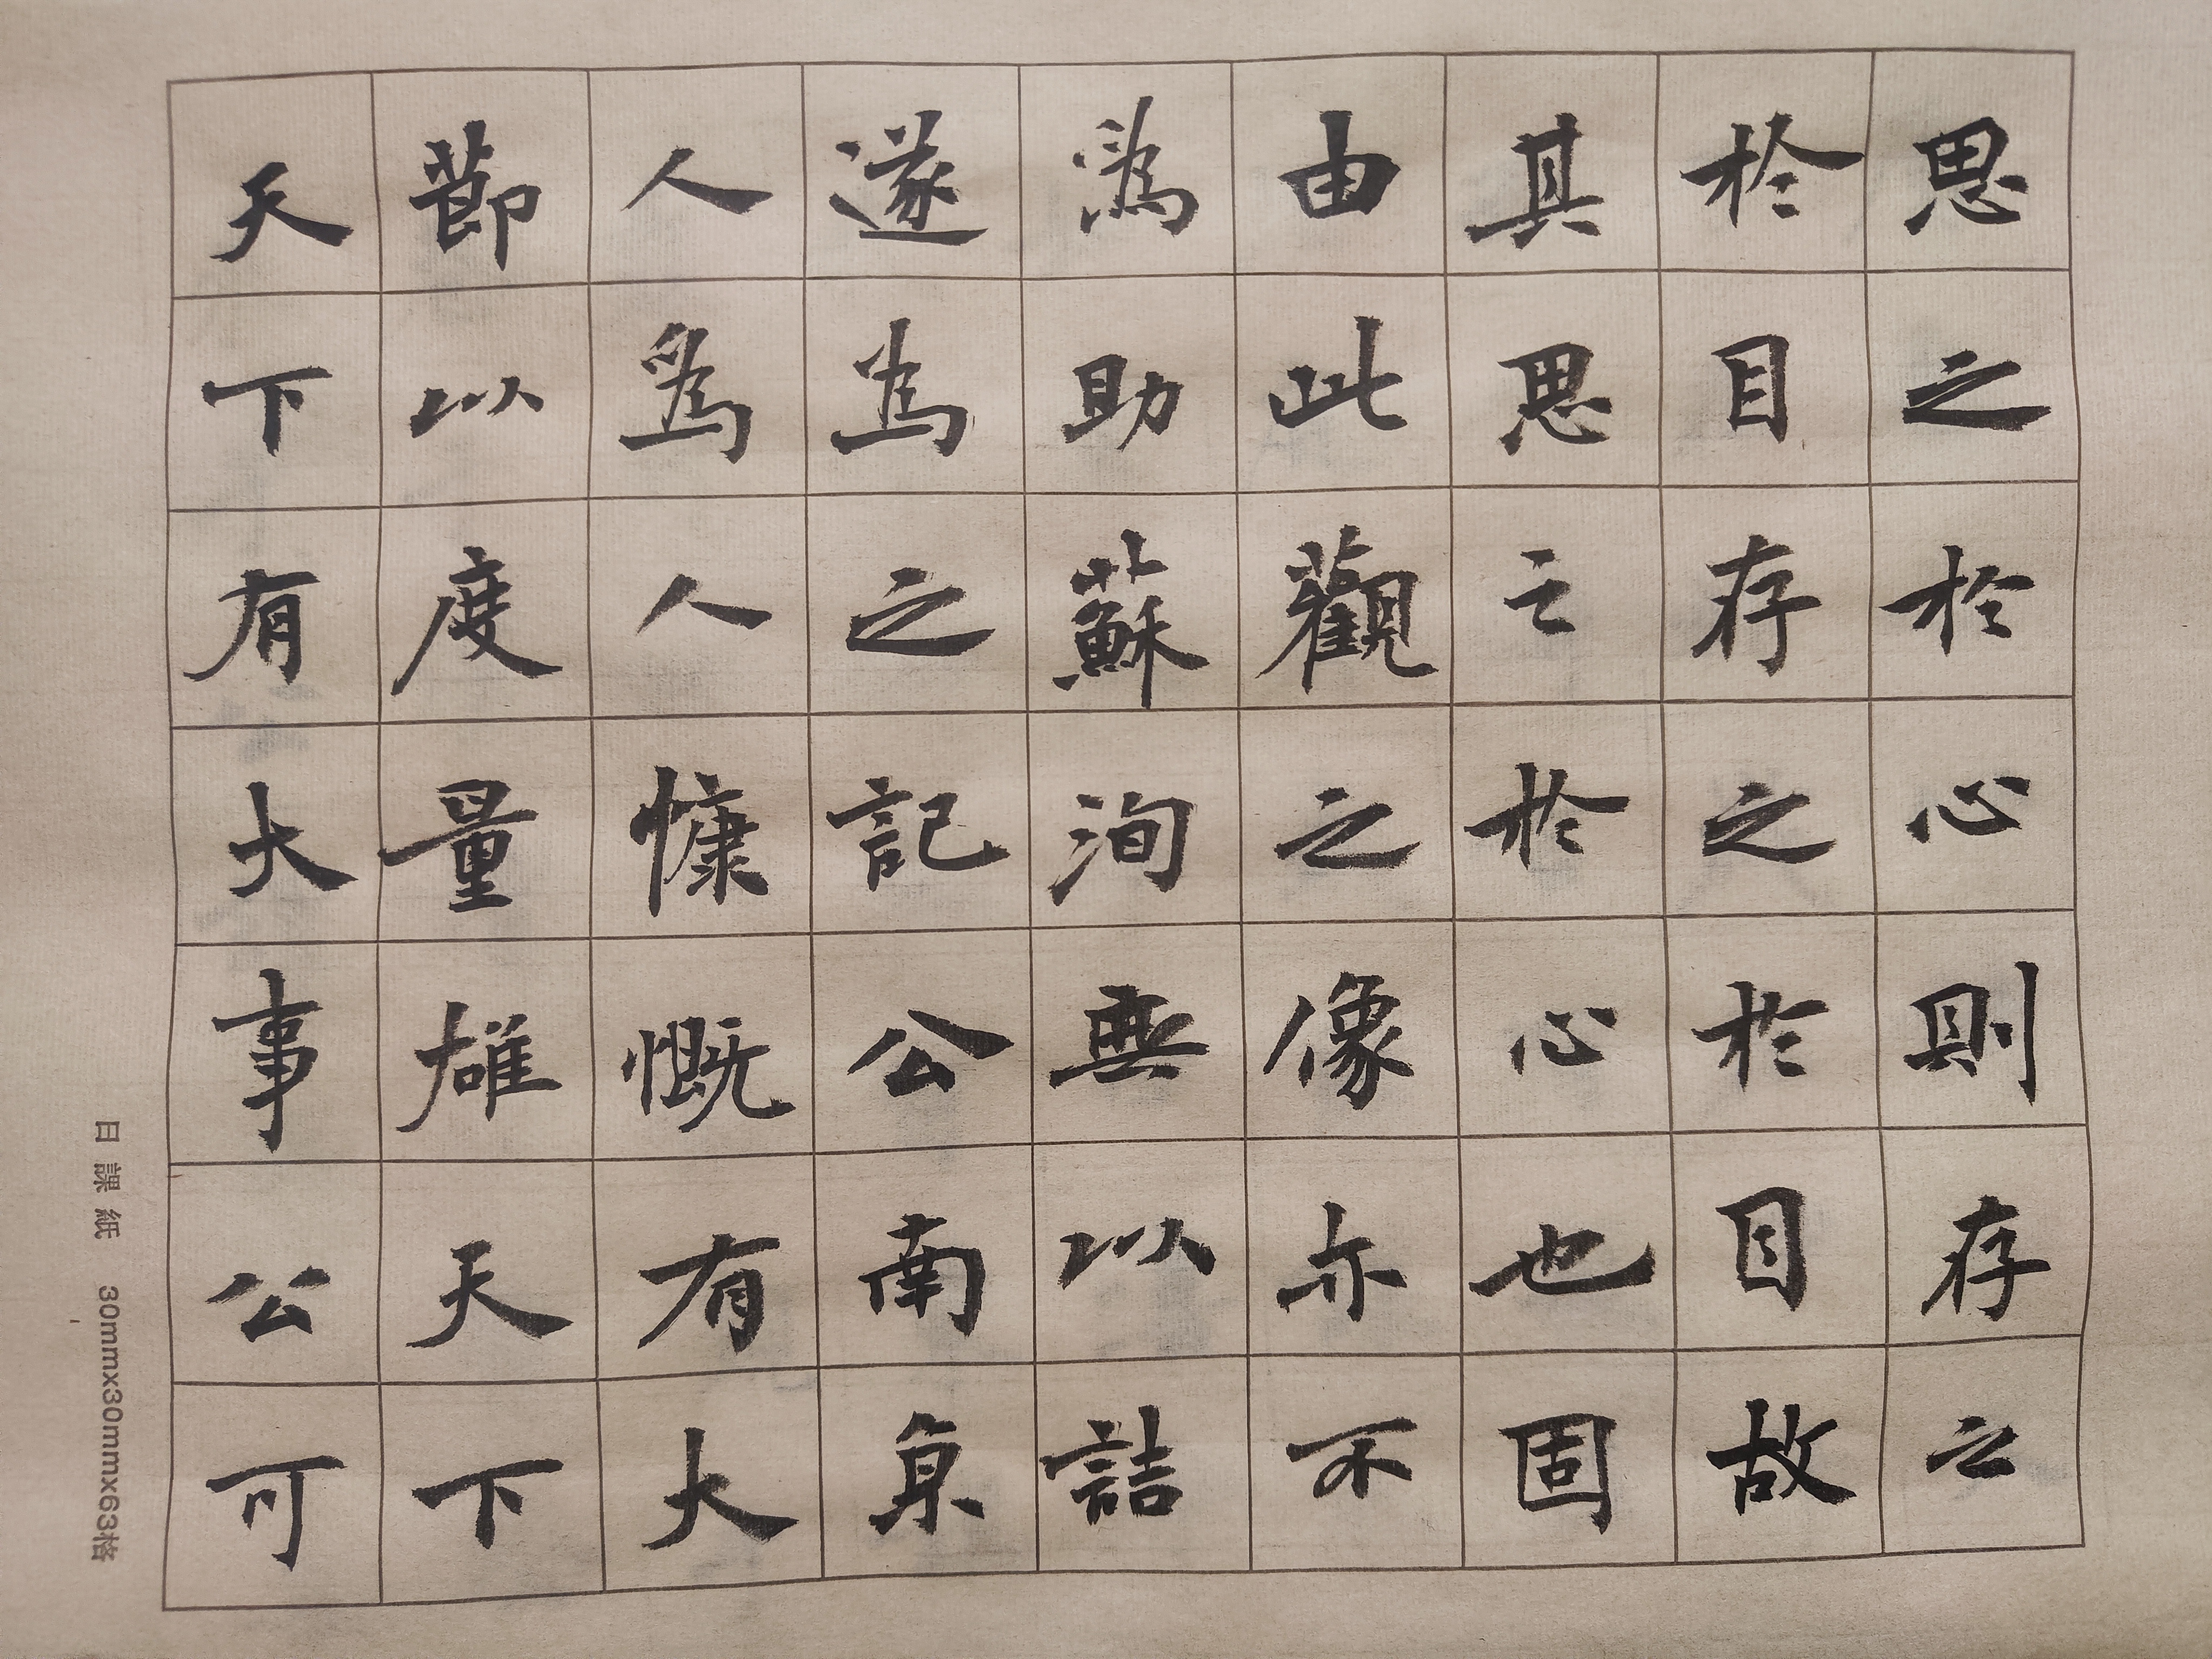 思之於心則存之
於目存之於目故
其思之於心也固
由此觀之像亦不
爲助蘇洵無以詰
遂爲之記公南亰
人爲人慷慨有大
節以度量雄天下
天下有大事公可
日課紙 30mmx30mmx63格